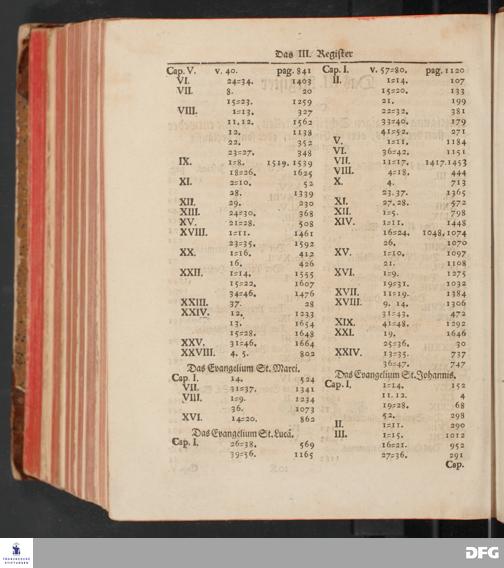 Das III. Register
Cap. V. v. 40. pag. 841
VI. 24=34. 1403
VII. 8. 20
15=23. 1259
VIII. 1=13. 327
11. 12. 1562
12. 1138
22. 352
23=27. 348
IX. 1=8. 1519. 1539
18=26. 1625
XI. 2=10. 52
28. 1339
XII. 29. 230
XIII. 24=30. 368
XV. 21=28. 508
XVIII. 1=11. 1461
23=35. 1592
XX. 1=16. 412
16. 426
XXII. 1=14. 1555
15=22. 1607
34=46. 1476
XXIII. 37. 28
XXIV. 12. 1233
13. 1654
15=28. 1648
XXV. 31=46. 1664
XXVIII. 4. 5. 802
Das Evangelium St. Marci.
Cap. I. 14. 524
VII. 31=37. 1341
VIII. 1=9. 1234
36. 1073
XVI. 14=20. 862
Das Evangelium St. Lucä.
Cap. I. 26=38. 569
39=56. 1165
Cap. I. v. 57=80. pag. 1120
II. 1=14. 107
15=20. 133
21. 199
22=32. 381
33=40. 179
41=52. 271
V. 1=11. 1184
VI. 36=42. 1151
VII. 11=17. 1417. 1453
VIII. 4=18. 444
X. 4. 713
23. 37. 1365
XI. 27. 28. 572
XII. 1=5. 798
XIV. 1=11. 1448
16=24. 1048. 1074
26. 1070
XV. 1=10. 1097
21. 1108
XVI. 1=9. 1275
19=31. 1032
XVII. 11=19. 1384
XVIII. 9. 14. 1306
31=43. 472
XIX. 41=48. 1292
XXI. 19. 1646
25=36. 30
XXIV. 13=35. 737
36=47. 747
Das Evangelium St. Johannis.
Cap. I. 1=14. 152
11. 12. 4
19=28. 68
52. 298
II. 1=11. 290
III. 1=15. 1012
16=21. 952
27=36. 291
Cap.
FRANCKESCHE
STIFTUNGEN
DFG